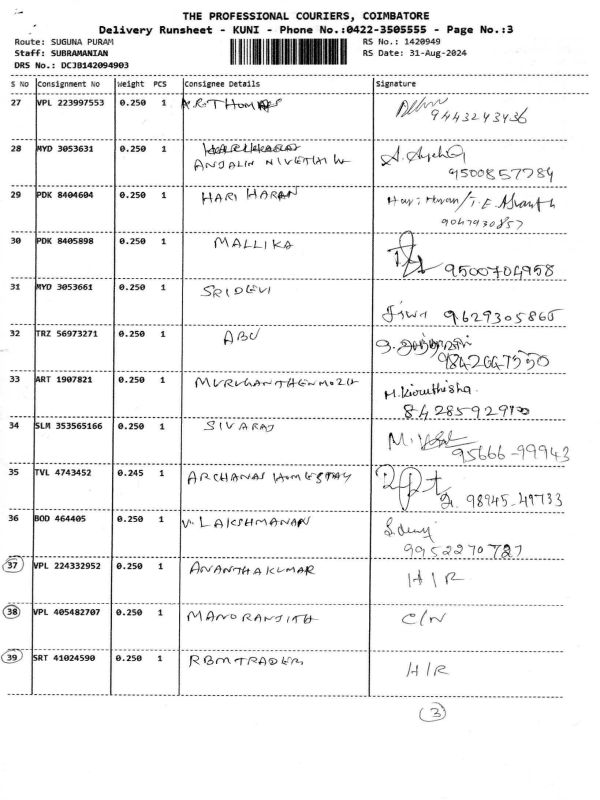 THE PROFESSIONAL COURIERS, COIMBATORE
Delivery Runsheet - KUNI - Phone No.:0422-3505555 - Page No.:3
Route: SUGUNA PURAM RS No.: 1420949
Staff: SUBRAMANIAN RS Date: 31-Aug-2024
DRS No.: DCJB142094903
S No Consignment No Weight PCS Consignee Details Signature
27 VPL 223997553 0.250 1 A.R.THOMAS
9443243436
28 MYD 3053631 0.250 1
ANJALIN NIVETHA W
9500857784
29 PDK 8404604 0.250 1 HARI HARAN
9047930857
30 PDK 8405898 0.250 1 MALLIKA
9500704958
31 MYD 3053661 0.250 1 SRIDEVI
9629305865
32 TRZ 56973271 0.250 1 ABU
33 ART 1907821 0.250 1 MURUGANTHENMOZH
M.Kiruthisha.
34 SLM 353565166 0.250 1 SIVARAJ
95666-99943
35 TVL 4743452 0.245 1 ARCHANAS HOMESTAY
98945-49733
36 BOD 464405 0.250 1 V. LAKSHMANAN
9952270727
37 VPL 224332952 0.250 1 ANANTHAKUMAR H/R
38 VPL 405482707 0.250 1 MANORANJITH C/N
39 SRT 41024590 0.250 1 RBMTRADERS H/R
3